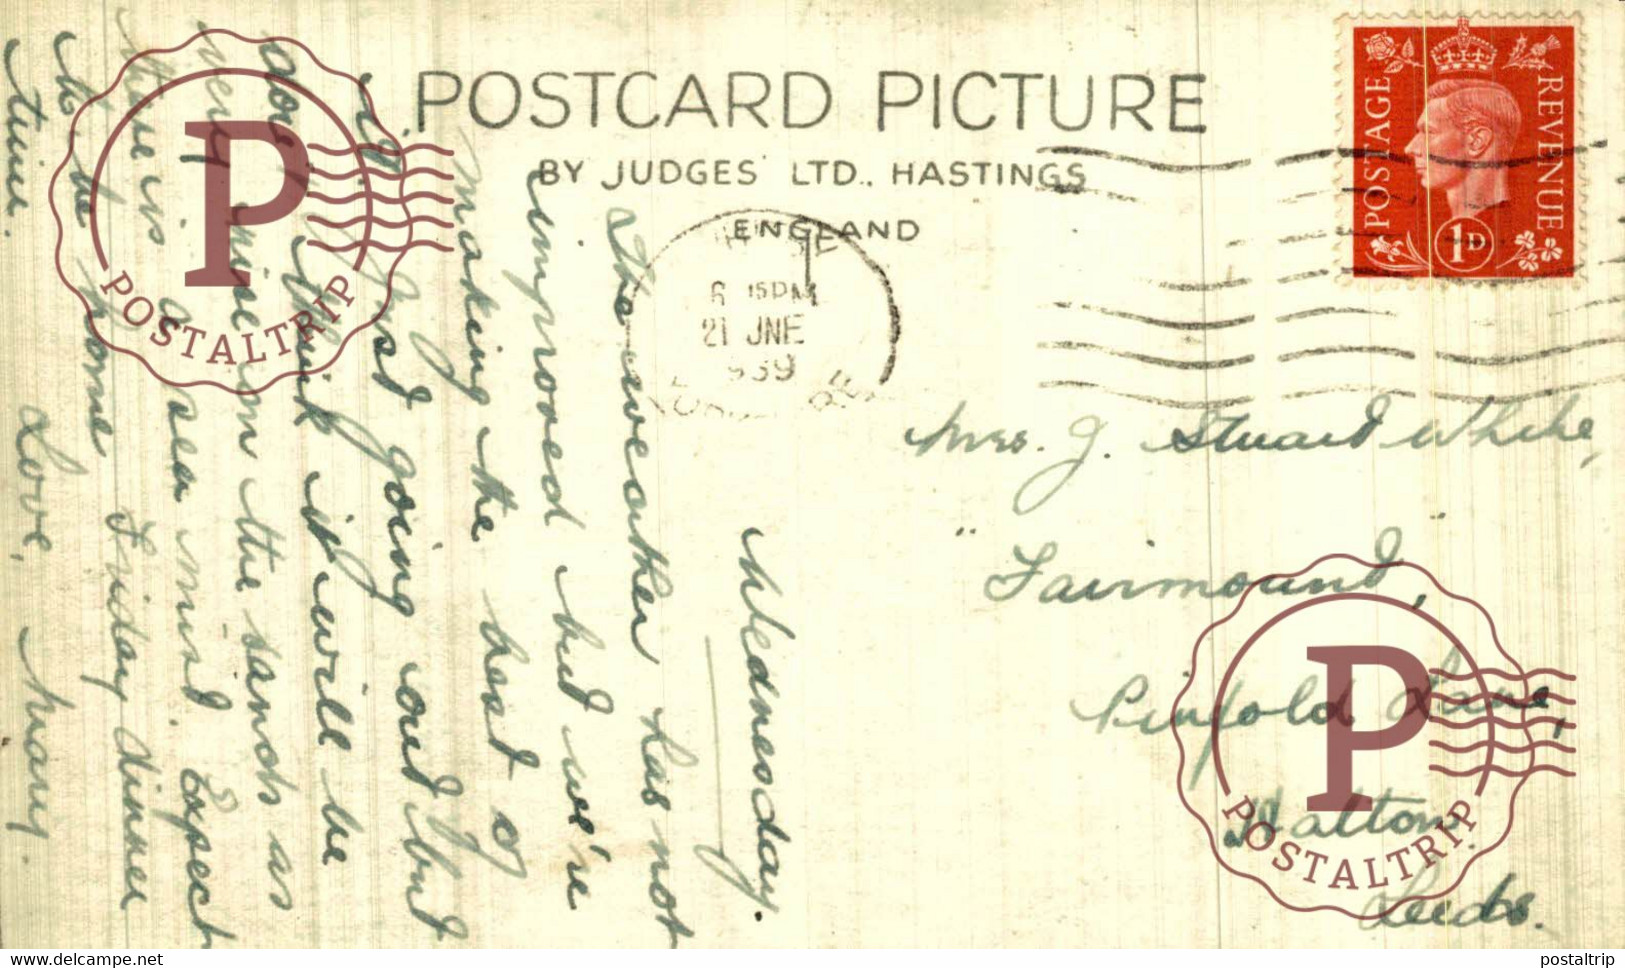 POSTCARD PICTURE
BY JUDGES LTD., HASTINGS
ENGLAND
POSTAGE REVENUE
1D
6 15 PM
21 JNE
939
Wednesday.
The weather has not
improved but we're
making the best of
it. Just going out but
don't think it will be
very nice on the sands as
there is a sea mist. Expect
to be home Friday dinner
time.
Love, Mary.
Mrs. J. Stuart White,
"Fairmound,"
Pinfold Lane,
Halton
Leeds.
P
POSTALTRIP
P
POSTALTRIP
Visit our website www.postaltrip.com
postaltrip